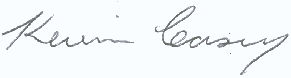 Kevin Casey